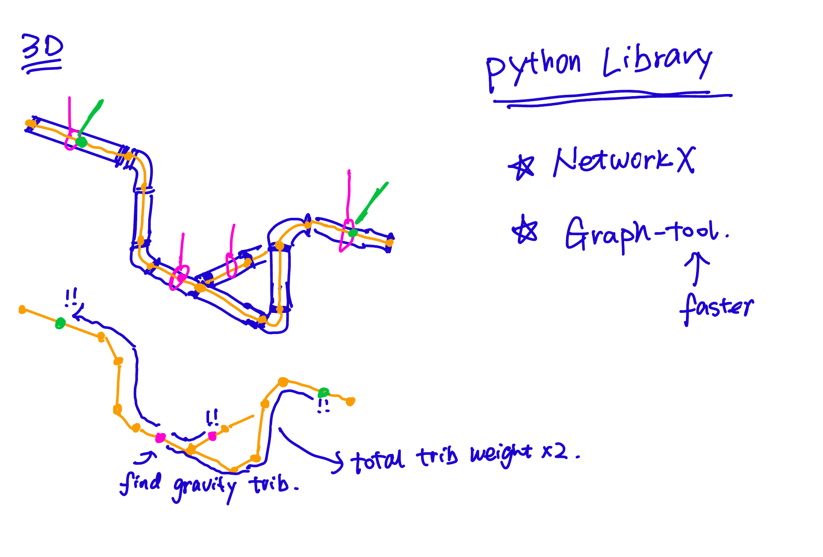 3D
Python Library
☆ NetworkX
☆ Graph-tool.
faster
!!
!!
!!
find gravity trib.
total trib weight x2.